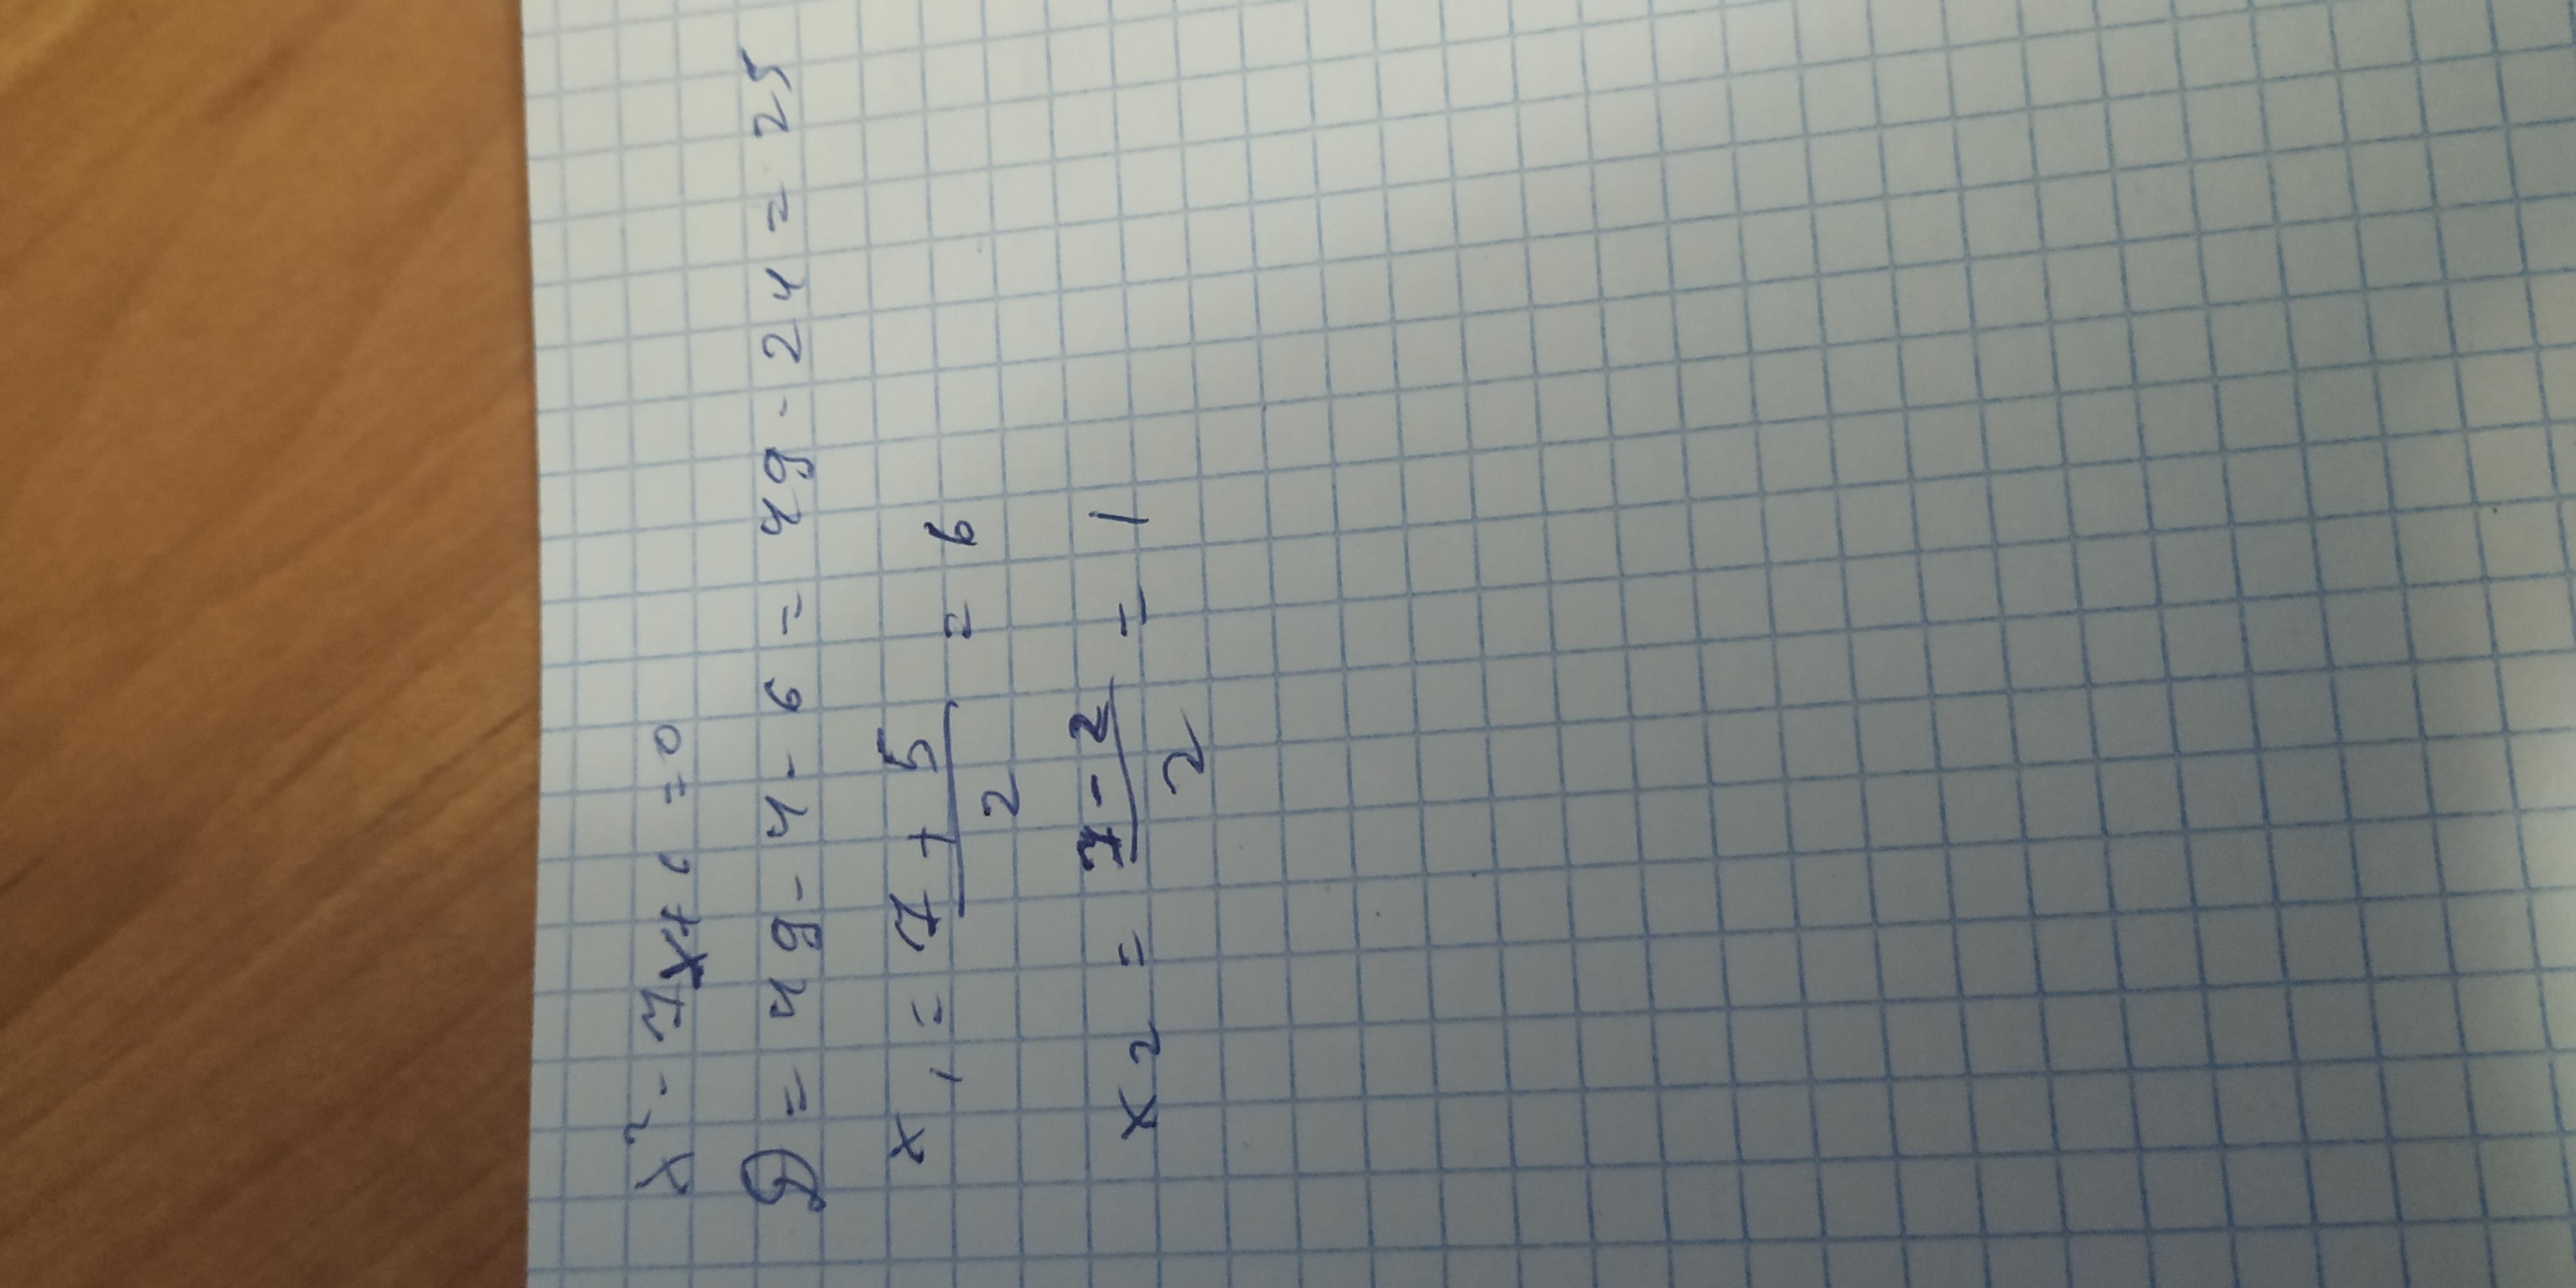 x² - 7x + 6 = 0
D = 49 - 4 · 6 = 49 - 24 = 25
x₁ = (7 + 5)/2 = 6
x₂ = (7 - 2)/2 = 1